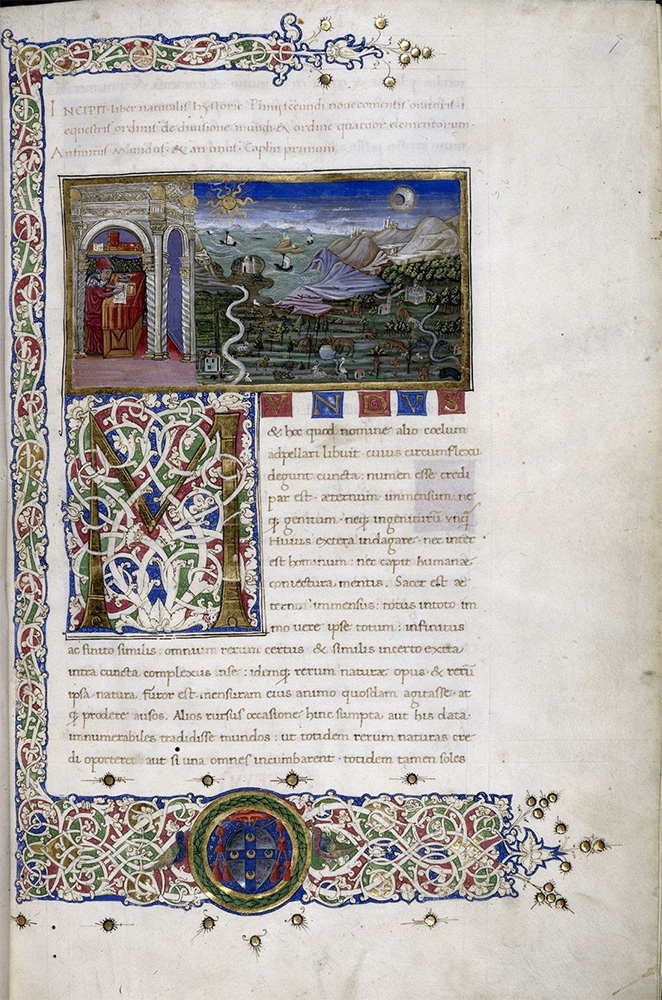 INCIPIT liber naturalis hystorie Plinii secundi novocomensis oratoris. i
equestris ordinis de divisione mundi & ordine quatuor elementorum.
An finitus Mundus. & an unus. Caplm primum
M
VNDVS
& hoc quod nomine alio coelum
adpellari libuit cuius circumflexu
degunt cuncta: numen esse credi
par est. aeternum immensum. ne
q; genitum. neq; ingeniturũ vnq̃
Huius extera indagare. nec inter
est hominum. nec capit humanæ
coniectura mentis. Sacer est æ
ternus immensus: totus intoto im
mo vere ipse totum: infinitus
ac finito similis: omnium rerum certus. & similis incerto extra
intra cuncta complexus inse: idemq; rerum naturæ opus. & rerũ
ipsa natura. Furor est mensuram eius animo quosdam agitasse. at
q; prodere ausos. Alios rursus occasione hinc sumpta. aut his data.
innumerabiles tradidisse mundos: ut totidem rerum naturas cre
di oporteret: aut si una omnes incumbarent. totidem tamen soles